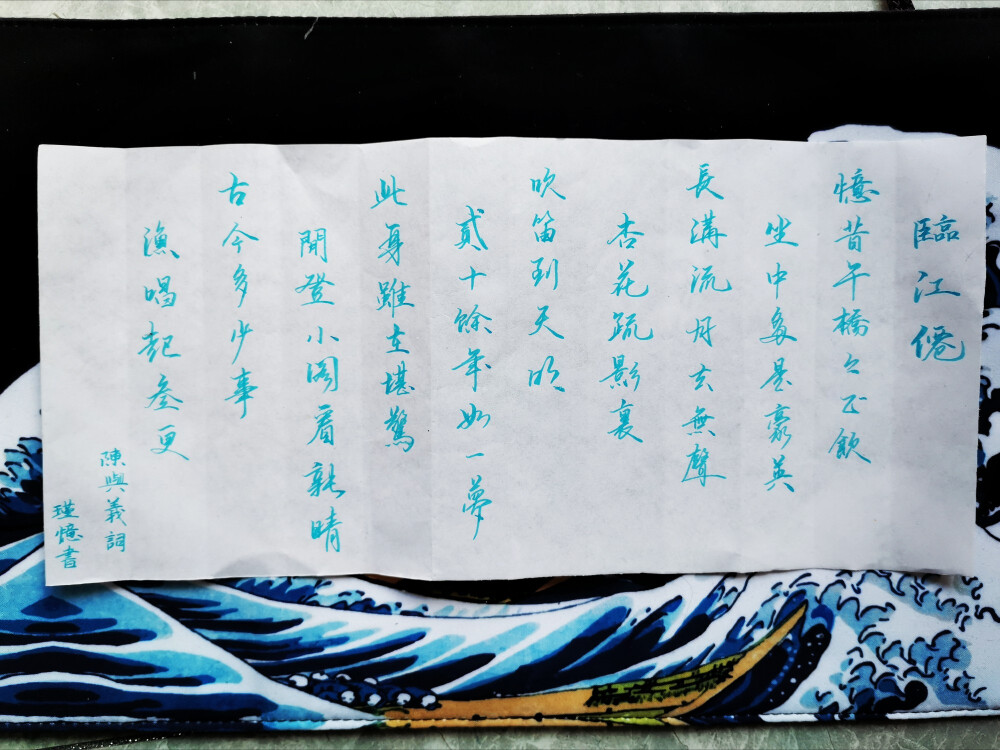 臨江僊
憶昔午橋橋上飲
坐中多是豪英
長溝流月去無聲
杏花疏影裏
吹笛到天明
貳十餘年如一夢
此身雖在堪驚
閒登小閣看新晴
古今多少事
漁唱起叁更
陳與義詞
瑾憶書